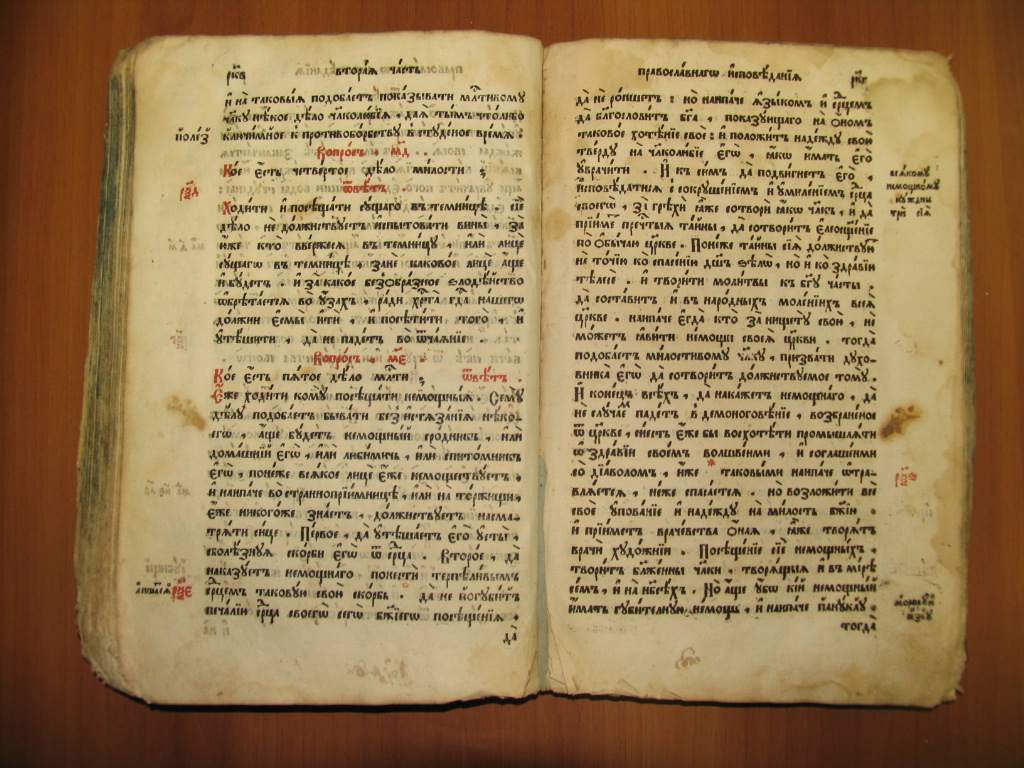 рк҃в
вторая часть
и на таковыя подобаетъ показывати мл҃тивому
чл҃ку нѣкое дѣло чл҃колюбїя , дая тымъ что либо
полез҃
ключимное к противоборьству в студеное время :
Вопросъ , м҃д .
Кое есть четвертое дѣло милости ;
р҃ѯд
ѿвѣтъ .
Ходити и посѣщати сущаго въ темницѣ . сїе
дѣло не должнствуетъ испытовати вины , за
юже кто ввержеся въ темницу , или лице
сущагѡ въ темницѣ , зане каковое лице аще
и будетъ . и за какое безѻбразное ѕлодѣйство
ѡбрѣтается во узахъ , ради хрⷭ҇та гдⷭ҇а нашегѡ
должни есмы ити , и посѣтити того , и
утѣшити , да не падетъ во ѿчаянїе .
Вопросъ , м҃е .
Кое есть пятое дѣло мл҃ти ; ѿвѣтъ .
Еже ходити кому посѣщати немощныя . Сему
дѣлу подобаетъ бывати без истязанїя нѣко-
егѡ , аще будетъ немощный сродникъ , или
домашнїй егѡ , или любимичь , или спитомникъ
егѡ , понеже всякое лице еже немощствуетъ ,
и наипаче во страннопрїимницѣ , или на торжищи ,
еже никогоже знаетъ , должнствуетъ насма-
тряти сице . Первое , да утѣшаетъ его усты ,
сболѣзнуя скорби егѡ ѿ срⷣца . Второе , да
наказуетъ немощнаго понести терпѣливымъ
р҃ѯе
срⷣцемъ таковую свою скорбь . да не погубитъ
печалїю срⷣца своегѡ сегѡ бж҃їегѡ посѣщенїя ,
да
православнагѡ исповѣданїя
рк҃г
да не ропщетъ : но наипаче языкомъ и срⷣцемъ
да благословитъ бг҃а , показующаго на ѻномъ
таковое хотѣнїе свое : и положитъ надежду свою
тверду на чл҃колюбїе егѡ , якѡ имать его
уврачити . И к симъ да подвигнетъ его ,
всякому
немощному
нужны
три сїя
исповѣдатися с сокрушенїемъ и умиленїемъ срⷣца
своегѡ , за грѣхи яже сотвори якѡ чл҃къ , и да
прїиме преч҃тыя тайны , да сотворитъ елеощенїе
по ѻбычаю цр҃кве . Понеже тайны сїя должнствуютъ
не точїю ко спасенїю дш҃ъ ѕѣлѡ , но и ко здравїю
тѣлесе . и творити молитвы къ бг҃у часты .
да составитъ и въ народныхъ моленїихъ всея
цр҃кве . наипаче егда кто за нищету свою , не
можетъ явити немощи своея цр҃кви . тогда
подобаетъ милостивому чл҃ку , призвати духо-
вника егѡ да сотворитъ должнствуемое тому .
И конецъ всѣхъ , да накажетъ немощнаго , да
не случаемъ падетъ в демоноговѣнїе , возбраненое
ѿ цр҃кве , сиесть еже бы восхотѣти промышляти
ѡ здравїи своемъ волшвенми , и соглашенми
со дїаволомъ , иже таковыми наипаче ѿтра-
вляется , неже спасается . но возложити все
свое упованїе и надежду на милость бж҃їю .
и прїиметъ врачевства ѻная , яже творятъ
врачи художнїи . Посѣщенїе сїе немощныхъ ,
творитъ блаженны чл҃ки , творящыя и въ мїрѣ
семъ , и на нб҃сѣхъ . Но аще убѡ кїй немощный
имать губителную немощь , и наипаче панукл҃у .
тогда